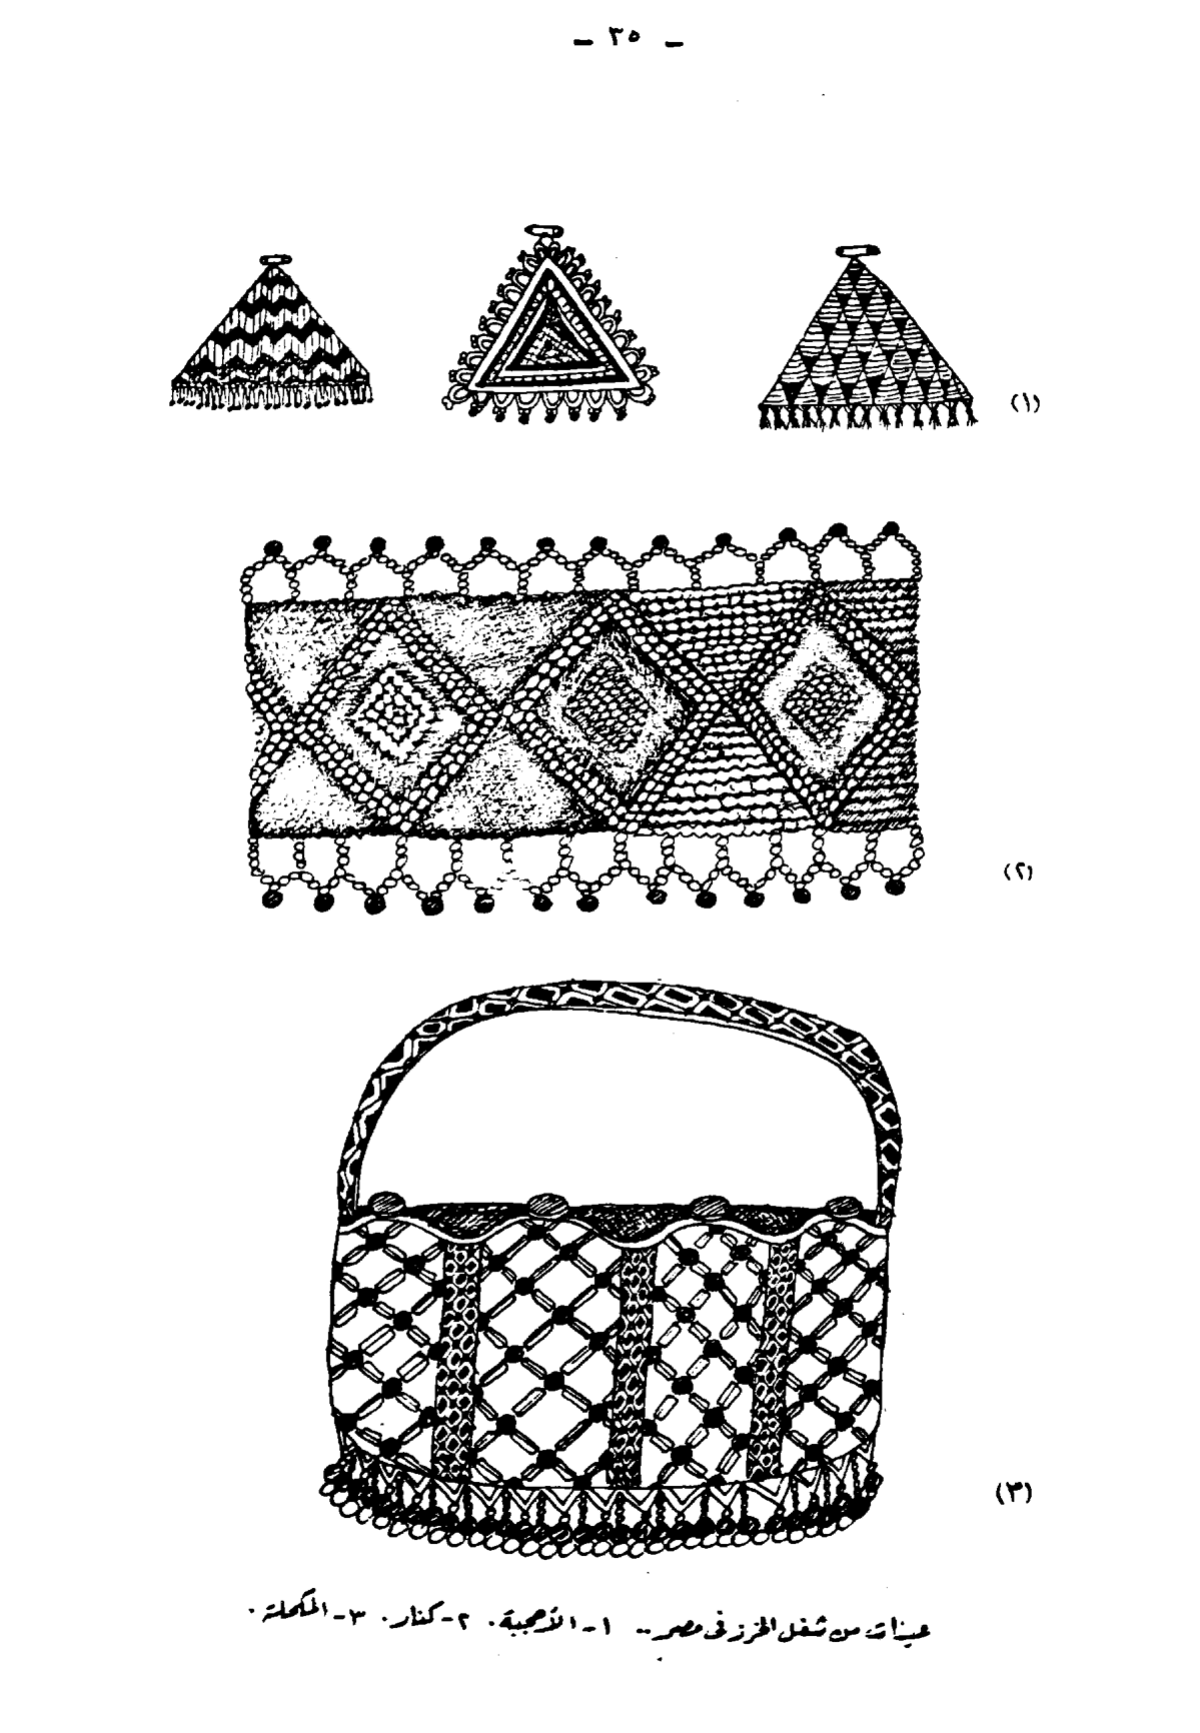 - ٣٥ -
(١)
(٢)
(٣)
عينات من شغل الخرز فى مصر .. ١ - الأحجبة . ٢ - كنار . ٣ - المكحلة .